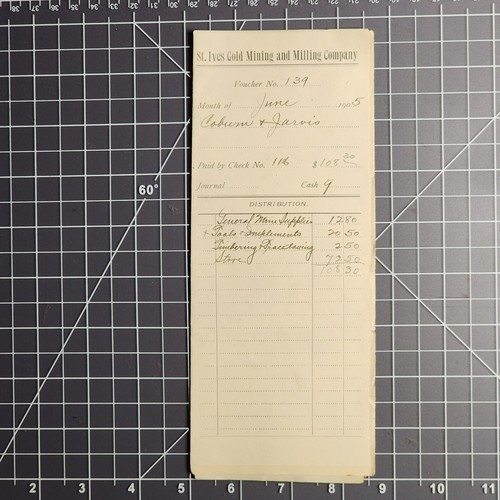 St. Ives Gold Mining and Milling Company
Voucher No. 139
Month of June 1905
Coburn & Jarvis
Paid by Check No. 116 $108 30
Journal Cash 9
DISTRIBUTION.
General Mine Supplies 12 80
Tools & Implements 20 50
Timbering & Tracklaying 2 50
Store 72 50
108 30
60°
2 3 4 5 6 7 8 9 10 11